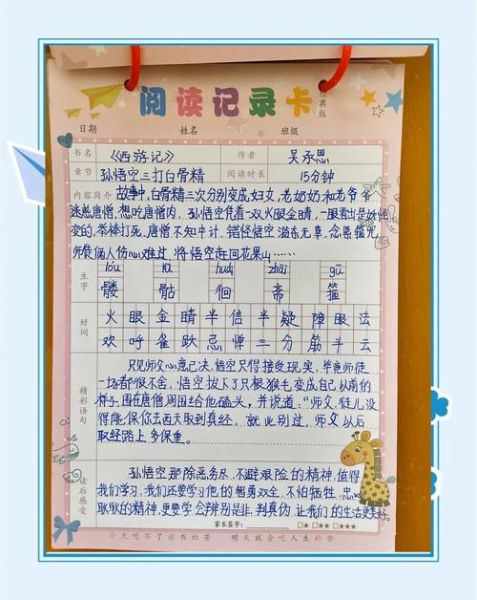 阅读记录卡
典版
日期 姓名 班级
书名 《西游记》 作者 吴承恩
章节 孙悟空三打白骨精 阅读时长 15分钟
内容简介 故事中,白骨精三次分别变成妇女,老奶奶和老爷爷
迷惑唐僧,想吃唐僧肉,孙悟空凭着一双火眼金睛,一眼看出是妖怪
变的,举棒打死,唐僧不知中计,错怪悟空滥杀无辜,念紧箍咒,
师徒俩人伤心难过,将悟空赶回花果山……
生字 lóu kū huái zhāi gū
髅 骷 徊 斋 箍
好词 火眼金睛半信半疑障眼法
欢呼雀跃忌惮三分筋斗云
精彩语句 只见师父心意已决,悟空只得接受现实,毕竟师徒
一场都很不舍,悟空拔下了只根猴毛变成自己从前的
样子,围在唐僧周围给他磕头,并说道:“师父,徒儿没
得能保你去西天取到真经,就此别过,师父以后
取经路上多保重。
读后感受 孙悟空那除恶务尽,不避艰险的精神,值得
我们学习,我们还要学习他的智勇双全,不怕牺牲,忠心
耿耿的精神,更要学会辨别是非,判真伪,让我们的生活更美好。
家长签字: □★ □★★ □★★★
今天吃不了读书的苦 明天就会吃人生的苦